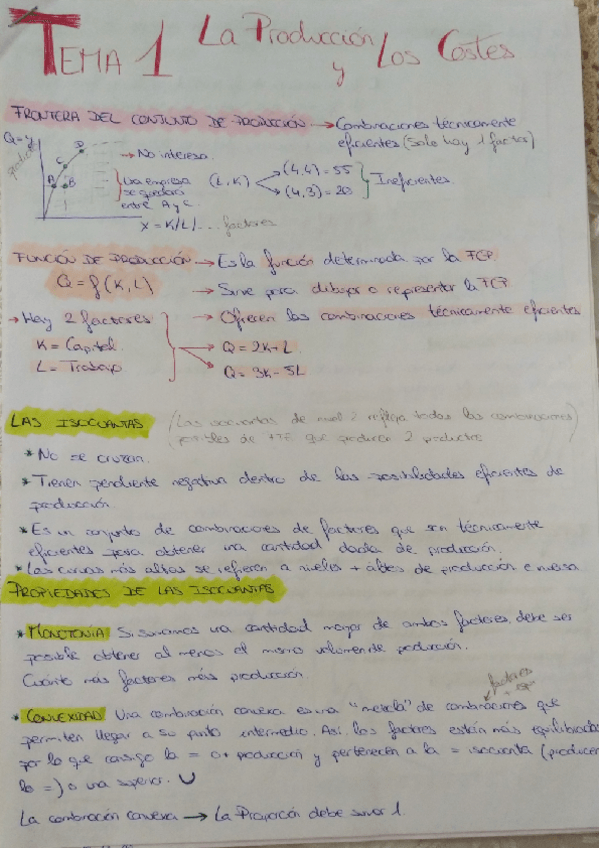 TEMA 1 La Producción y Los Costes
FRONTERA DEL CONJUNTO DE PRODUCCIÓN → Combinaciones técnicamente
eficientes (Solo hay 1 factor)
Q = y
D
C
A B
→ No interesa.
Una empresa
se quedará
entre A y C.
(L, K)
(4,4) = 55
(4,3) = 20
Ineficientes.
X = K/L/... factores
FUNCIÓN DE PRODUCCIÓN → Es la función determinada por la FCP
Q = f (K, L)
→ Sirve para dibujar o representar la FCP
→ Hay 2 factores
→ Ofrecen las combinaciones técnicamente eficientes
K = Capital.
→ Q = 2K + L.
L = Trabajo
→ Q = 3K - 5L
LAS ISOCUANTAS (Las isocuantas de nivel 2 refleja todas las combinaciones
posibles de FF que producen 2 productos
* No se cruzan.
* Tienen pendiente negativa dentro de las posibilidades eficientes de
producción
* Es un conjunto de combinaciones de factores que son técnicamente
eficientes para obtener una cantidad dada de producción.
* Las curvas más altas se refieren a niveles + altos de producción e
PROPIEDADES DE LAS ISOCUANTAS
* MONOTONIA Si sumamos una cantidad mayor de ambos factores, debe ser
posible obtener al menos el mismo volumen de producción.
Cuánto más factores más producción.
factores
* CONVEXIDAD Una combinación convexa es una "mezcla" de combinaciones que
permiten llegar a su punto intermedio. Así los factores están más equilibrados
por lo que consigo la = o + producción y pertenecen a la = isocuanta (producen
lo =) o una superior. ∪
La combinación convexa → La Proporción debe sumar 1.